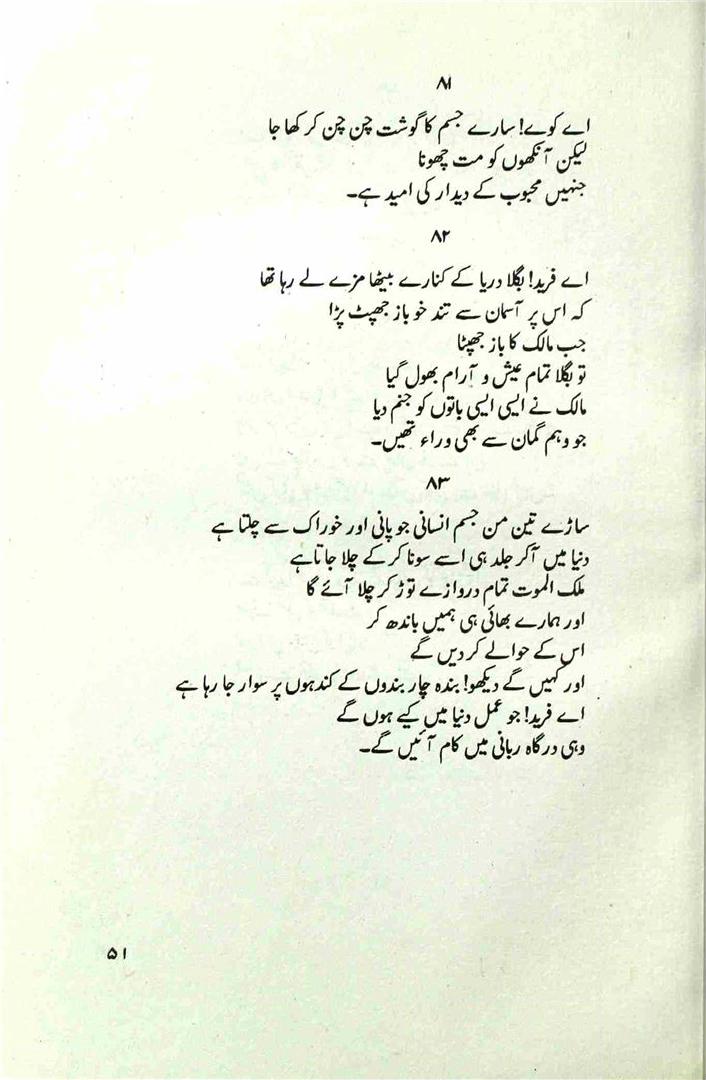 ۸۱
اے کوے! سارے جسم کا گوشت چن چن کر کھا جا
لیکن آنکھوں کو مت چھونا
جنہیں محبوب کے دیدار کی امید ہے۔
۸۲
اے فرید! بگلا دریا کے کنارے بیٹھا مزے لے رہا تھا
کہ اس پر آسمان سے تند خو باز جھپٹ پڑا
جب مالک کا باز جھپٹا
تو بگلا تمام عیش و آرام بھول گیا
مالک نے ایسی ایسی باتوں کو جنم دیا
جو وہم گمان سے بھی وراء تھیں۔
۸۳
ساڑے تین من جسم انسانی جو پانی اور خوراک سے چلتا ہے
دنیا میں آکر جلد ہی اسے سونا کر کے چلا جاتا ہے
ملک الموت تمام دروازے توڑ کر چلا آئے گا
اور ہمارے بھائی ہی ہمیں باندھ کر
اس کے حوالے کر دیں گے
اور کہیں گے دیکھو! بندہ چار بندوں کے کندہوں پر سوار جا رہا ہے
اے فرید! جو عمل دنیا میں کیے ہوں گے
وہی درگاہ ربانی میں کام آئیں گے۔
۵۱